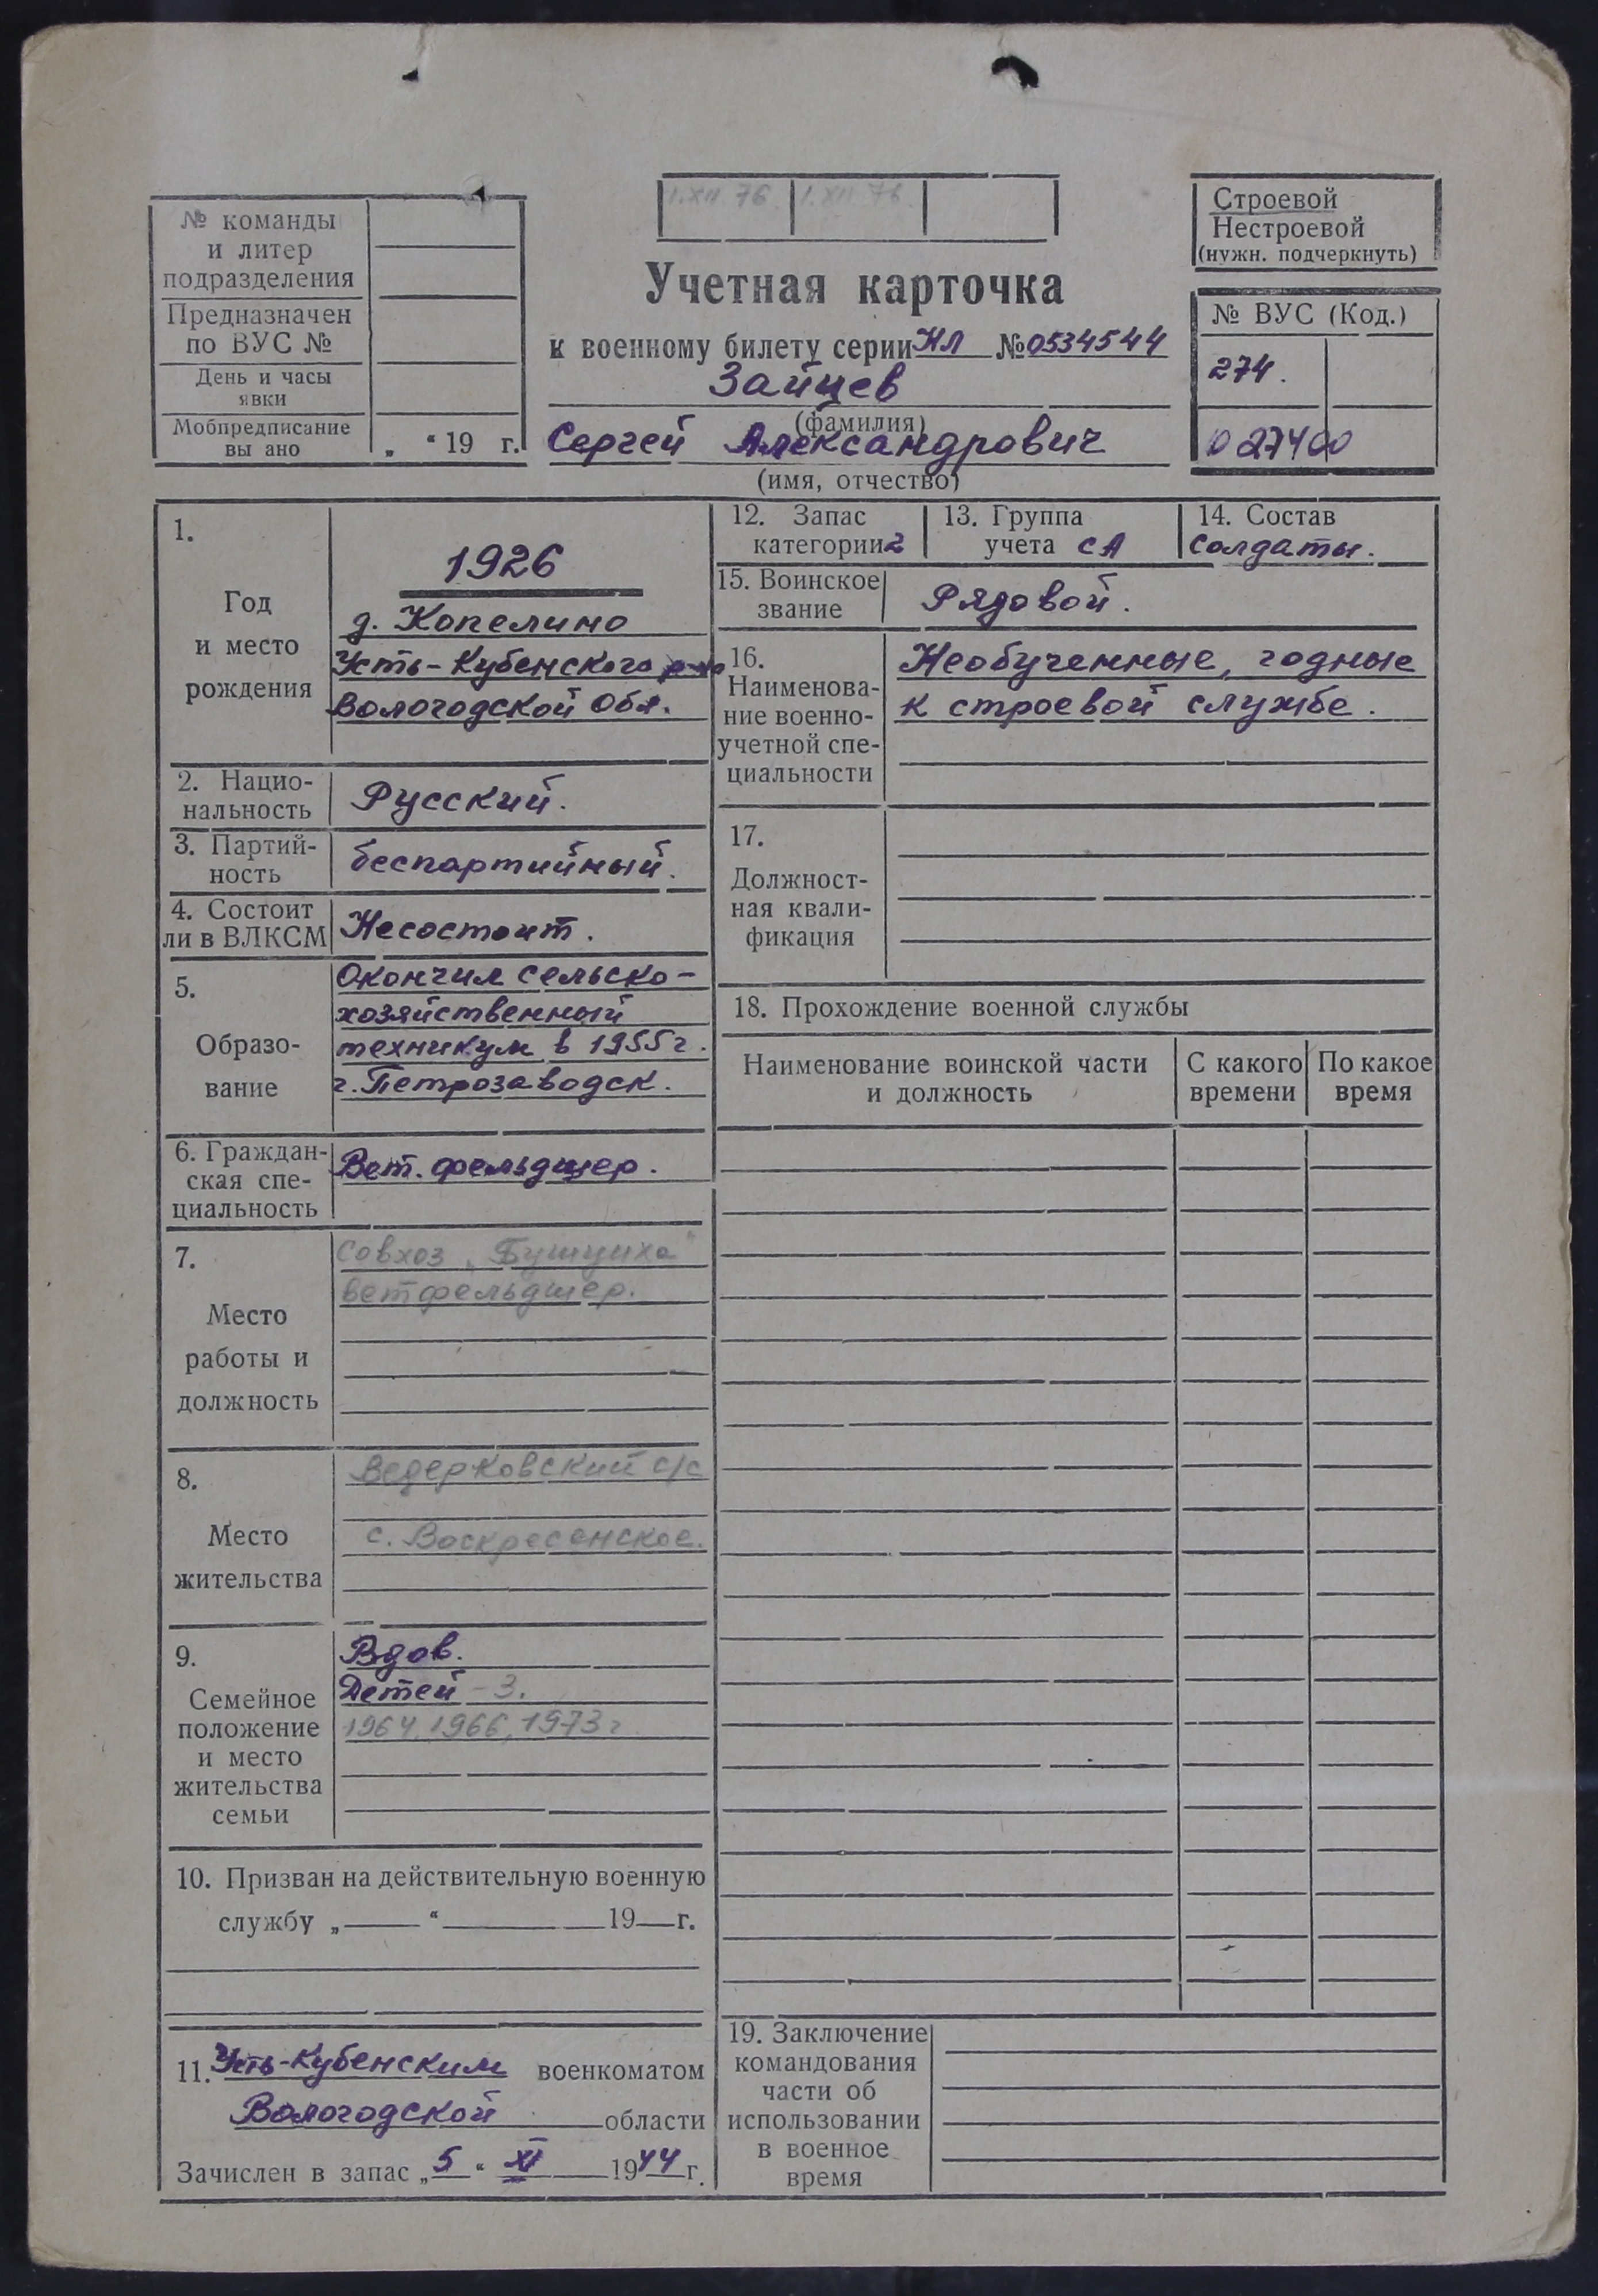 № команды
и литер
подразделения
Предназначен
по ВУС №
День и часы
явки
Мобпредписание
вы ано „ “ 19 г.
1.XII 76 1.XII 76
Учетная карточка
к военному билету серии НЛ № 0534544
Зайцев
(фамилия)
Сергей Александрович
(имя, отчество)
Строевой
Нестроевой
(нужн. подчеркнуть)
№ ВУС (Код.)
274.
027400
1.
Год
и место
рождения
1926
д. Копелино
Усть-Кубенского р-на
Вологодской обл.
2. Нацио-
нальность
Русский.
3. Партий-
ность
беспартийный.
4. Состоит
ли в ВЛКСМ
Несостоит.
5.
Образо-
вание
Окончил сельско-
хозяйственный
техникум в 1955г.
г. Петрозаводск.
6. Граждан-
ская спе-
циальность
Вет. фельдшер.
7.
Место
работы и
должность
Совхоз „Бушуиха“
ветфельдшер.
8.
Место
жительства
Ведерковский с/с
с. Воскресенское.
9.
Семейное
положение
и место
жительства
семьи
Вдов.
Детей - 3.
1964, 1966, 1973г
10. Призван на действительную военную
службу „ “ 19 г.
11. Усть-Кубенским военкоматом
Вологодской области
Зачислен в запас „5“ XI 1944 г.
12. Запас
категории 2
13. Группа
учета СА
14. Состав
солдаты.
15. Воинское
звание
Рядовой.
16.
Наименова-
ние военно-
учетной спе-
циальности
Необученные, годные
к строевой службе.
17.
Должност-
ная квали-
фикация
18. Прохождение военной службы
Наименование воинской части
и должность
С какого
времени
По какое
время
19. Заключение
командования
части об
использовании
в военное
время